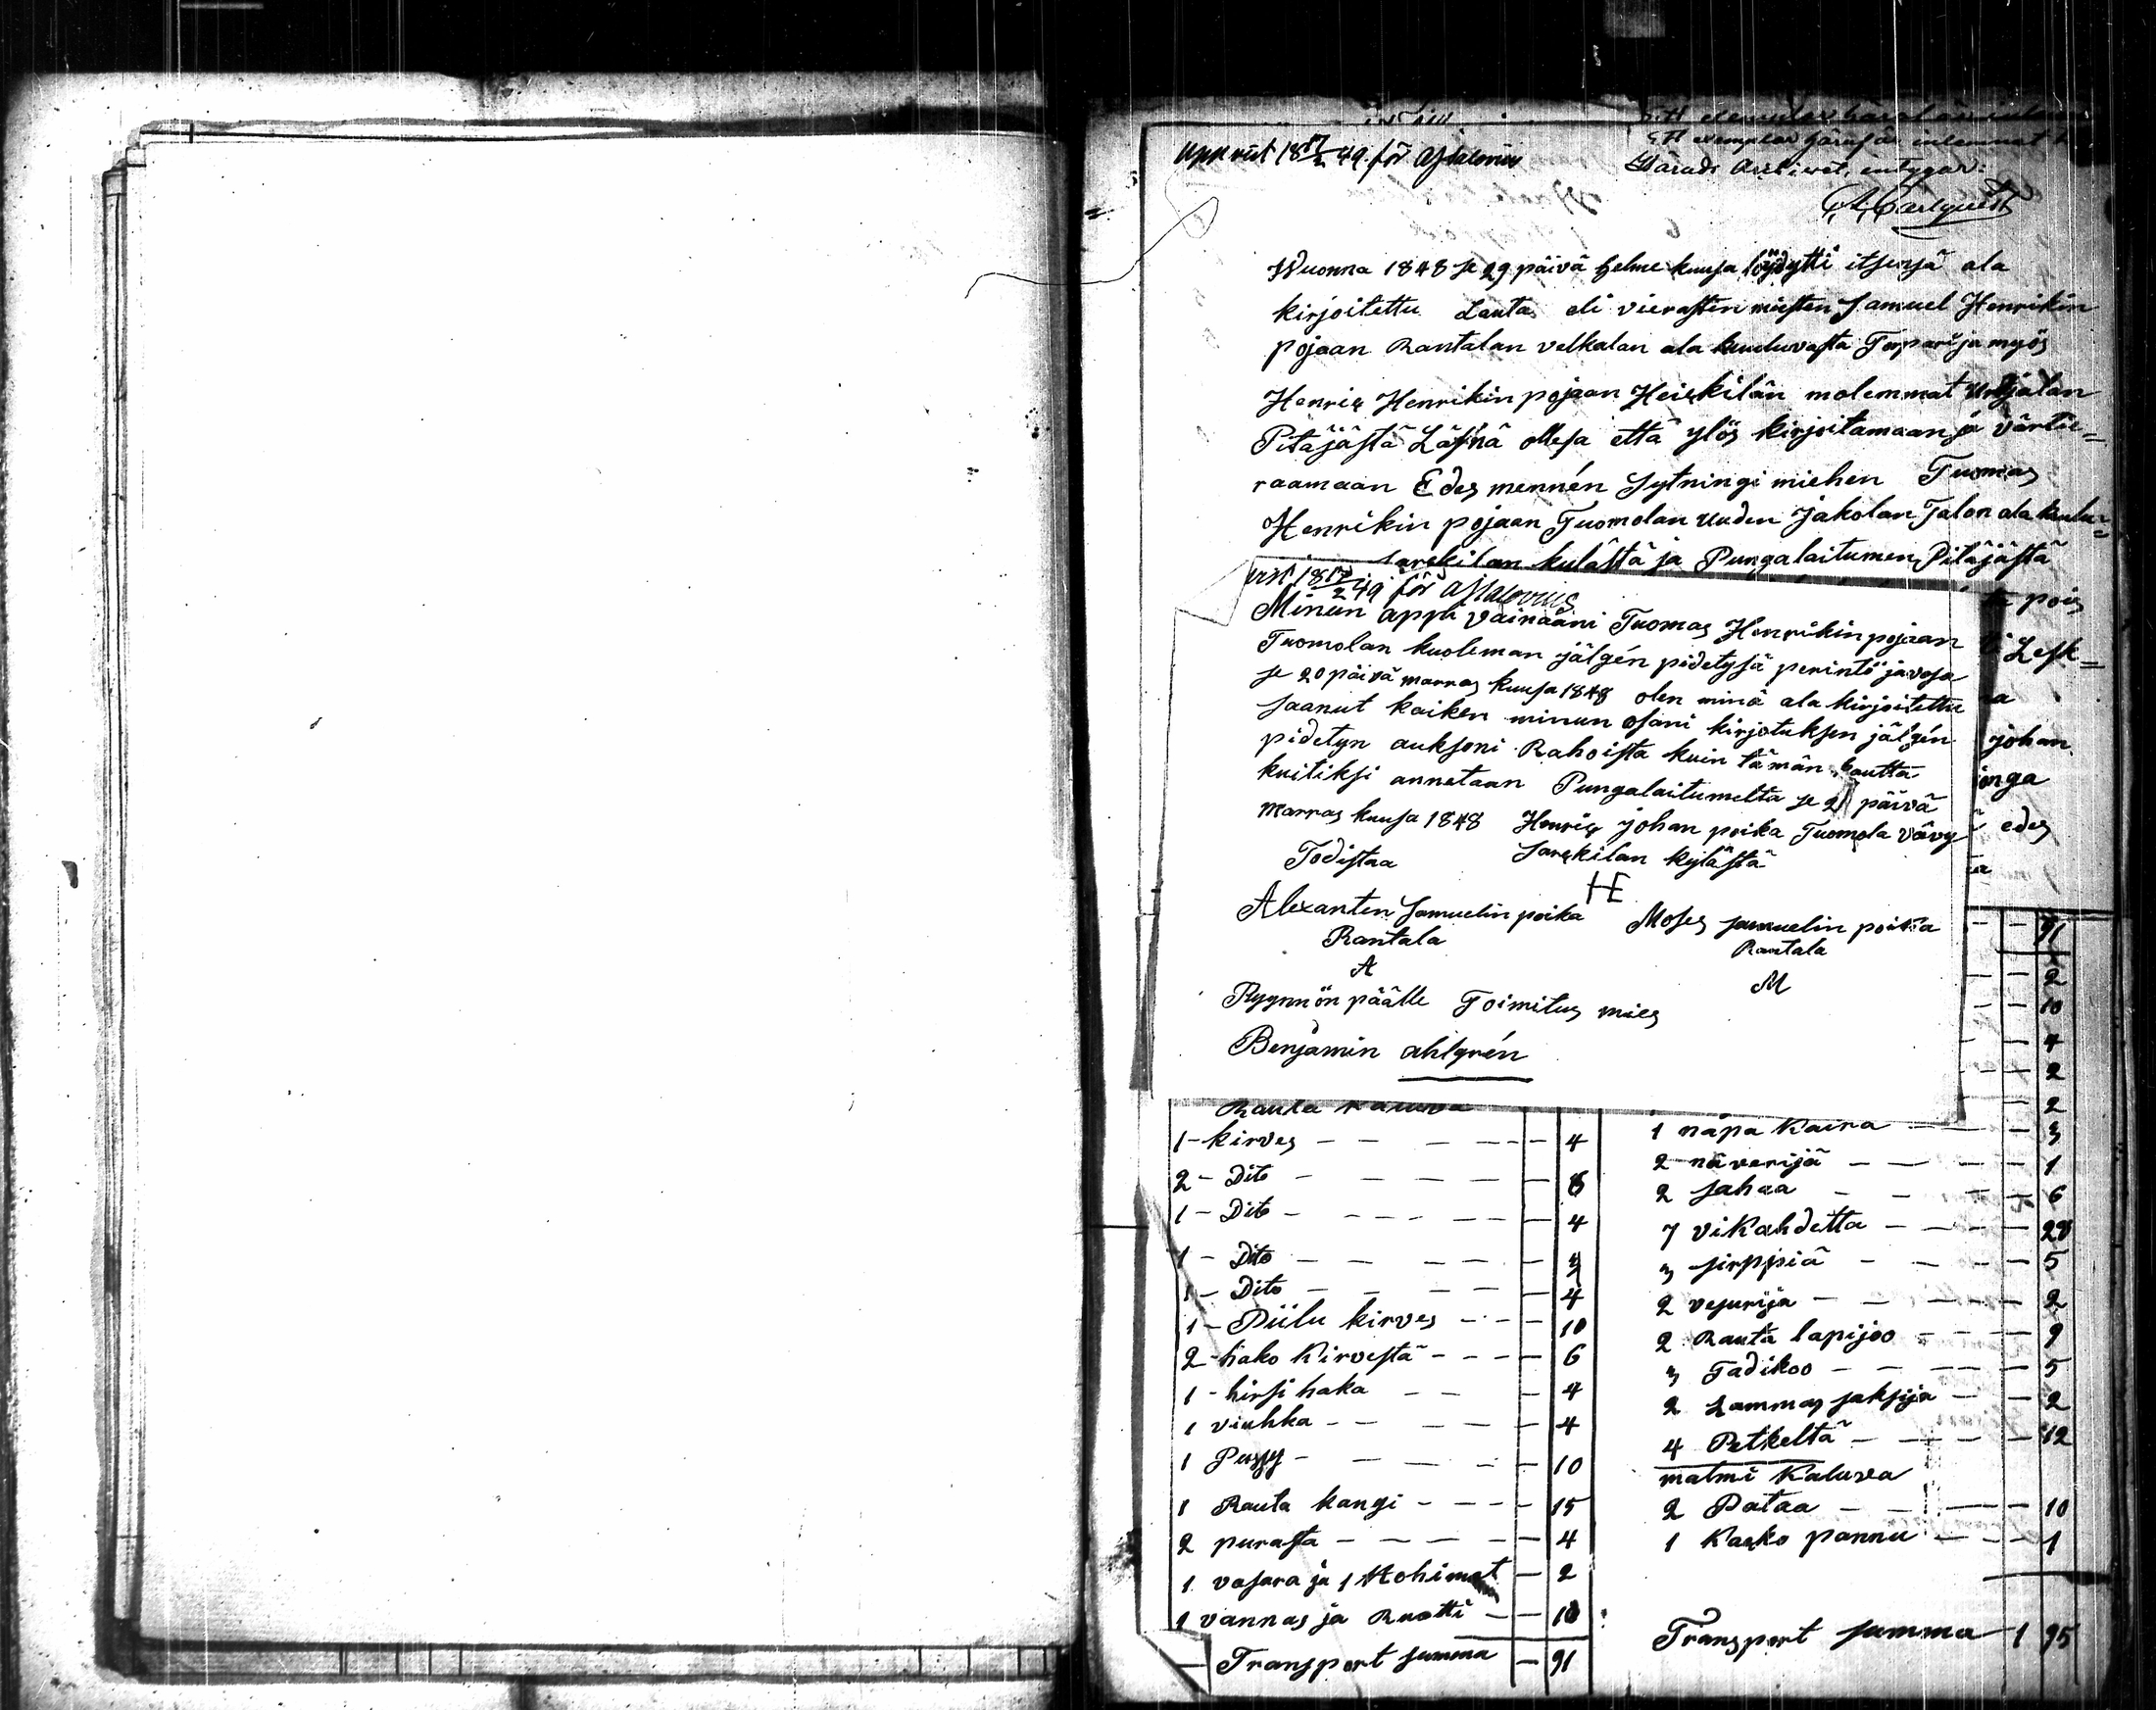 uppvist 18 17/2 49. för afskrivs
Ett exemplar häraf är inlemnat t
Härads Arkivet, intygar:
A. Carlquist
Wuonna 1848 se 29 päivä helme kuusa löydytti itsensä ala
kirjoitettu Lauta eli vierasten miesten Samuel Henrikin
pojaan Rantalan velkalan ala kuuluvasta Torpari ja myös
Henric Henrikin pojaan Heickilän molemmat Urjalan
Pitäjästä Läsnä ollesa että ylös kirjoitamaan ja värtie=
raamaan Edes mennén Sytningi miehen Tuomas
Henrikin pojaan Tuomolan uuden Jakolan Talon ala kulu=
Sarckilan kulästä ja Pungalaitumen Pitäjästä
pois
Lesk=
johan
inga
edes
vist 18 17/2 49 för
Minun appi vainaani Tuomas Henrikin pojaan
Tuomolan kuoleman jälgén pidetysä perintö javosa
se 20 päivä marras kuusa 1848 olen minä ala kirjoitettu
saanut kaiken minun osani kirjotuksen jälgén
pidetyn auksoni Rahoista kuin tämän kautta
kuitiksi annetaan Pungalaitumelta se 21 päivä
marras kuusa 1848 Henric johan poika Tuomola vävy
Todistaa Sarckilan kylästä
HE
Alexanten Samuelin poika Moses samuelin poika
Rantala Rantala
A M
Pyynnön päälle Toimitus mies
Benjamin ahlgrén
91
2
10
4
2
2
Rauta Kaluva
1 - kirves - 4
2 - Dito - 8
1 - Dito - 4
1 - Dito - 3
1 - Dito - 4
1 - Piilu kirves - 10
2 - hako Kirvestä - 6
1 - hirsi haka - 4
1 viuhka - 4
1 Pussy - 10
1 Rauta kangi - 15
2 purasta - 4
1 vasara ja 1 Hohimet - 2
1 vannas ja Ruotti - 10
Transport summa - 91
1 näpa Kaira - 3
2 näverijä - 1
2 sahaa - 6
7 viKahdetta - 28
3 sirppiä - 5
2 vesurija - 2
2 Rauta lapijoo - 9
3 Tadikoo - 5
2 Lammas saksija - 2
4 Petkeltä - 12
malmi Kaluva
2 Pataa - 10
1 Kacko pannu - 1
Transport summa 1 95